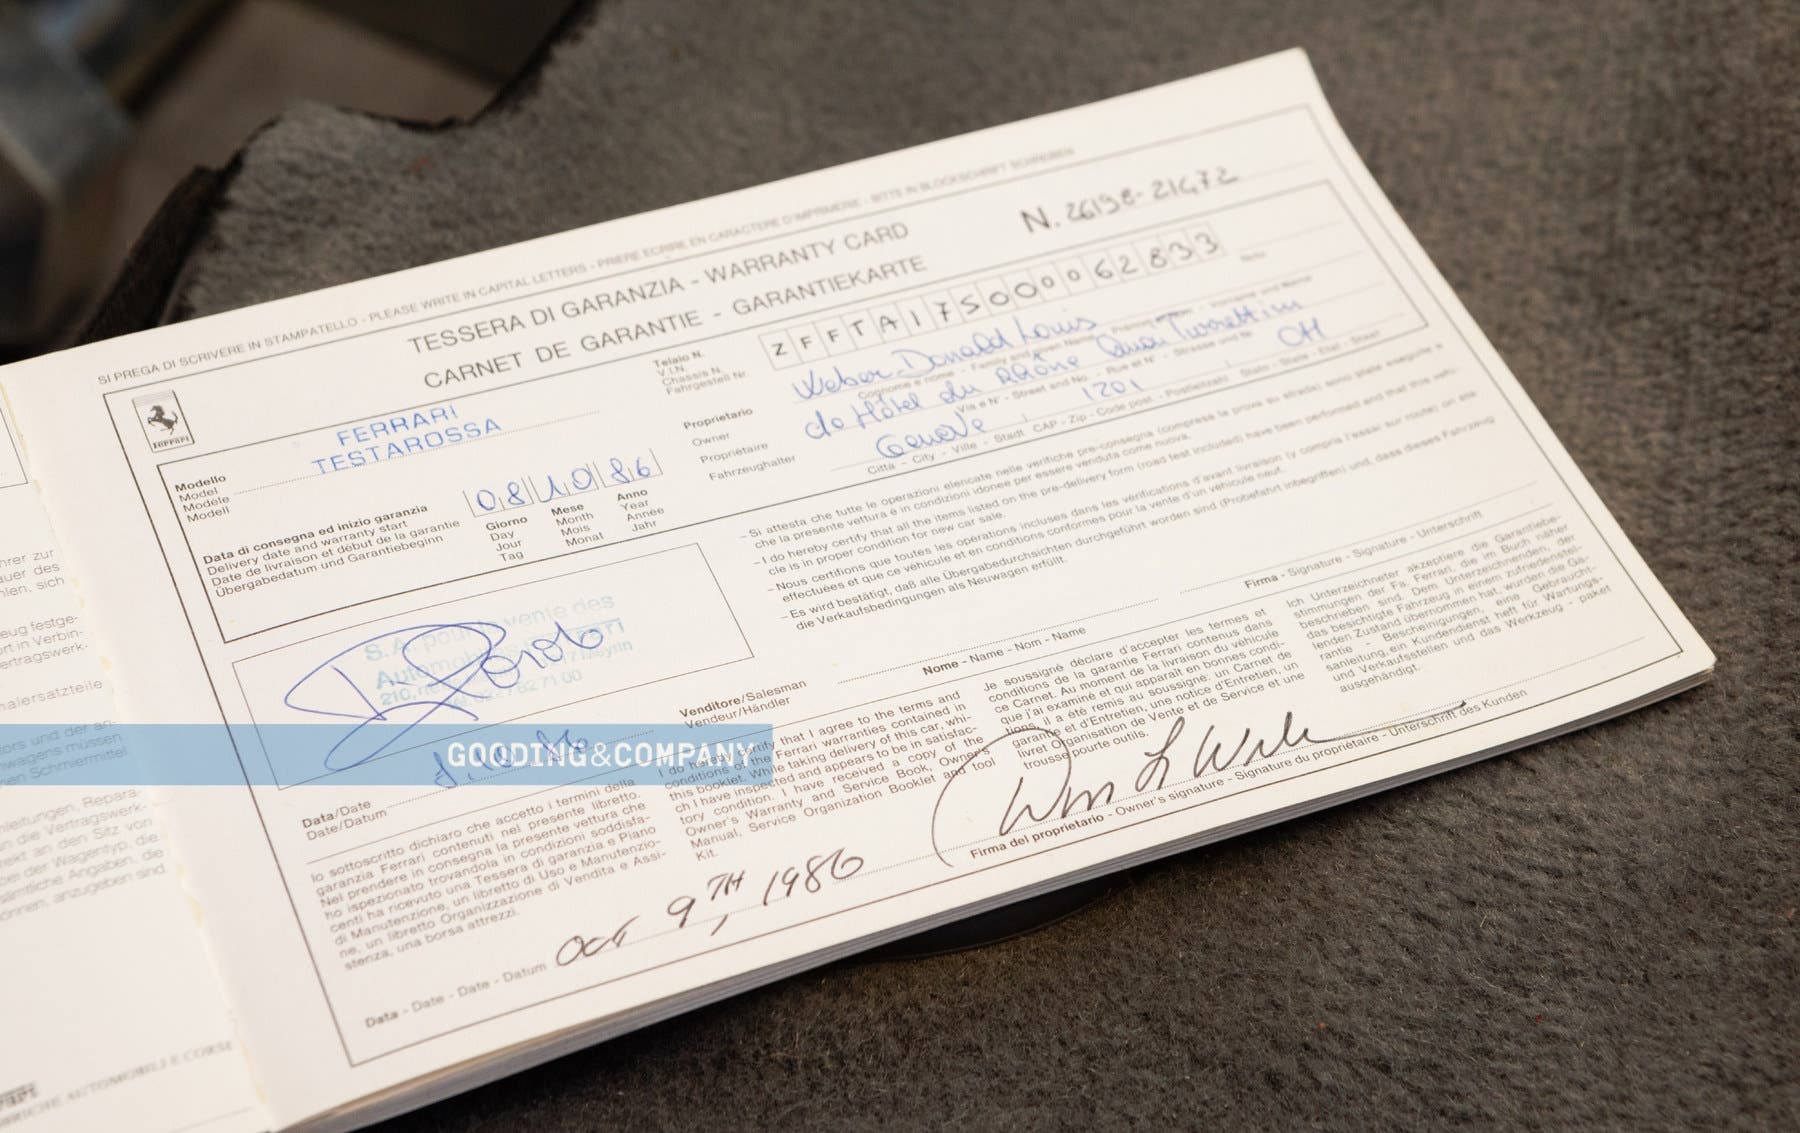 SI PREGA DI SCRIVERE IN STAMPATELLO - PLEASE WRITE IN CAPITAL LETTERS - PRIERE ECRIRE EN CARACTERE D'IMPRIMERIE - BITTE IN BLOCKSCHRIFT SCHREIBEN
TESSERA DI GARANZIA - WARRANTY CARD
CARNET DE GARANTIE - GARANTIEKARTE
N. 26198-21472
Ferrari
FERRARI
TESTAROSSA
Modello
Model
Modèle
Modell
Telaio N.
V.I.N.
Chassis N.
Fahrgestell Nr.
ZFFTA17S000062833
Proprietario
Owner
Propriétaire
Fahrzeughalter
Weber Donald Louis
de Hôtel du Rhône Quai Turrettini
Via e N° - Street and No. - Rue et N° - Strasse und Nr.
Genève 1201 CH
Città - City - Ville - Stadt CAP - Zip - Code post. - Postleitzahl Stato - State - Etat - Staat
Data di consegna ed inizio garanzia
Delivery date and warranty start
Date de livraison et début de la garantie
Übergabedatum und Garantiebeginn
08 10 86
Giorno Mese Anno
Day Month Year
Jour Mois Année
Tag Monat Jahr
- Si attesta che tutte le operazioni elencate nelle verifiche pre-consegna (compresa la prova su strada) sono state eseguite e
che la presente vettura è in condizioni idonee per essere venduta come nuova.
- I do hereby certify that all the items listed on the pre-delivery form (road test included) have been performed and that this vehi-
cle is in proper condition for new car sale.
- Nous certifions que toutes les opérations incluses dans les vérifications d'avant livraison (y compris l'essai sur route) on été
effectuées et que ce véhicule et en conditions conformes pour la vente d'un véhicule neuf.
- Es wird bestätigt, daß alle Übergabedurchsichten durchgeführt worden sind (Probefahrt inbegriffen) und, dass dieses Fahrzeug
die Verkaufsbedingungen als Neuwagen erfüllt.
S.A. pour la vente des
Automobiles Ferrari
Meyrin
Venditore/Salesman
Vendeur/Händler
Nome - Name - Nom - Name
Firma - Signature - Signature - Unterschrift
Data/Date
Date/Datum
GOODING&COMPANY
Io sottoscritto dichiaro che accetto i termini della
garanzia Ferrari contenuti nel presente libretto.
Nel prendere in consegna la presente vettura che
ho ispezionato trovandola in condizioni soddisfa-
centi ha ricevuto una Tessera di garanzia e Piano
di Manutenzione, un libretto di Uso e Manutenzio-
ne, un libretto Organizzazione di Vendita e Assi-
stenza, una borsa attrezzi.
I do hereby certify that I agree to the terms and
conditions of the Ferrari warranties contained in
this booklet. While taking delivery of this car, whi-
ch I have inspected and appears to be in satisfac-
tory condition. I have received a copy of the
Owner's Warranty and Service Book, Owner's
Manual, Service Organization Booklet and tool
Kit.
Je soussigné déclare d'accepter les termes et
conditions de la garantie Ferrari contenus dans
ce Carnet. Au moment de la livraison du véhicule
que j'ai examiné et qui apparaît en bonnes condi-
tions, il a été remis au soussigne: un Carnet de
garantie et d'Entretien, une notice d'Entretien, un
livret Organisation de Vente et de Service et une
trousse pourte outils.
Ich Unterzeichneter akzeptiere die Garantiebe-
stimmungen der Fa. Ferrari, die im Buch näher
beschrieben sind. Dem Unterzeichnenden, der
das besichtigte Fahrzeug in einem zufriedenstel-
lenden Zustand übernommen hat, wurden die Ga-
rantie - Bescheinigungen, eine Gebraucht-
sanleitung, ein Kundendienst heft für Wartungs-
und Verkaufsstellen und das Werkzeug - paket
ausgehändigt.
Data - Date - Date - Datum OCT 9TH, 1986
Firma del proprietario - Owner's signature - Signature du proprietaire - Unterschrift des Kunden